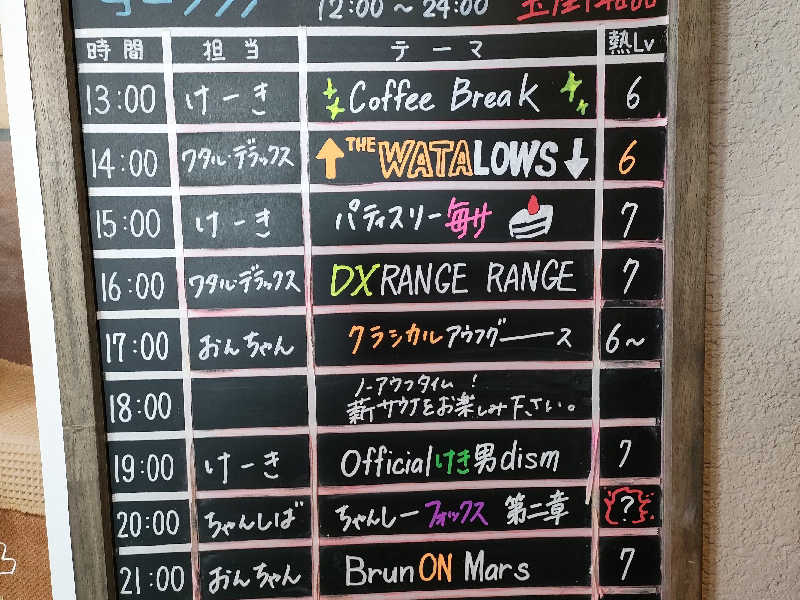 12:00 ~ 24:00
時間 担当 テーマ 熱Lv
13:00 けーき Coffee Break 6
14:00 ワタル・デラックス ↑THE WATALOWS↓ 6
15:00 けーき パティスリー毎サ 7
16:00 ワタル・デラックス DX RANGE RANGE 7
17:00 おんちゃん クラシカルアウフグース 6~
18:00 ノーアウフタイム!
薪サウナをお楽しみ下さい。
19:00 けーき Officialけき男dism 7
20:00 ちゃんしば ちゃんしーフォックス 第二章 ?
21:00 おんちゃん BrunON Mars 7